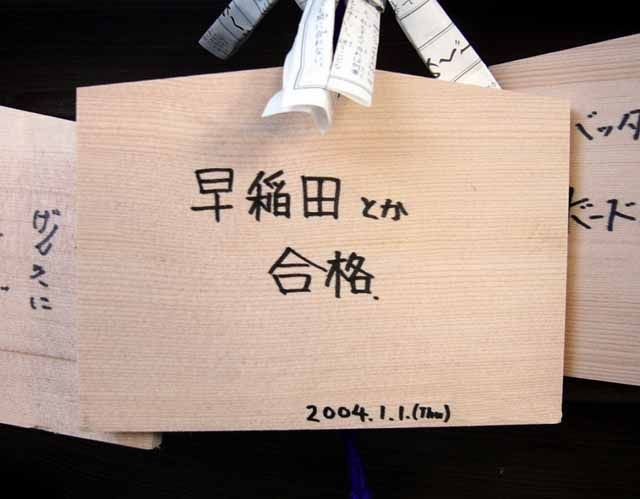 早稲田とか
合格.
2004.1.1.(Thu)
げんきに
バッタ
ボード